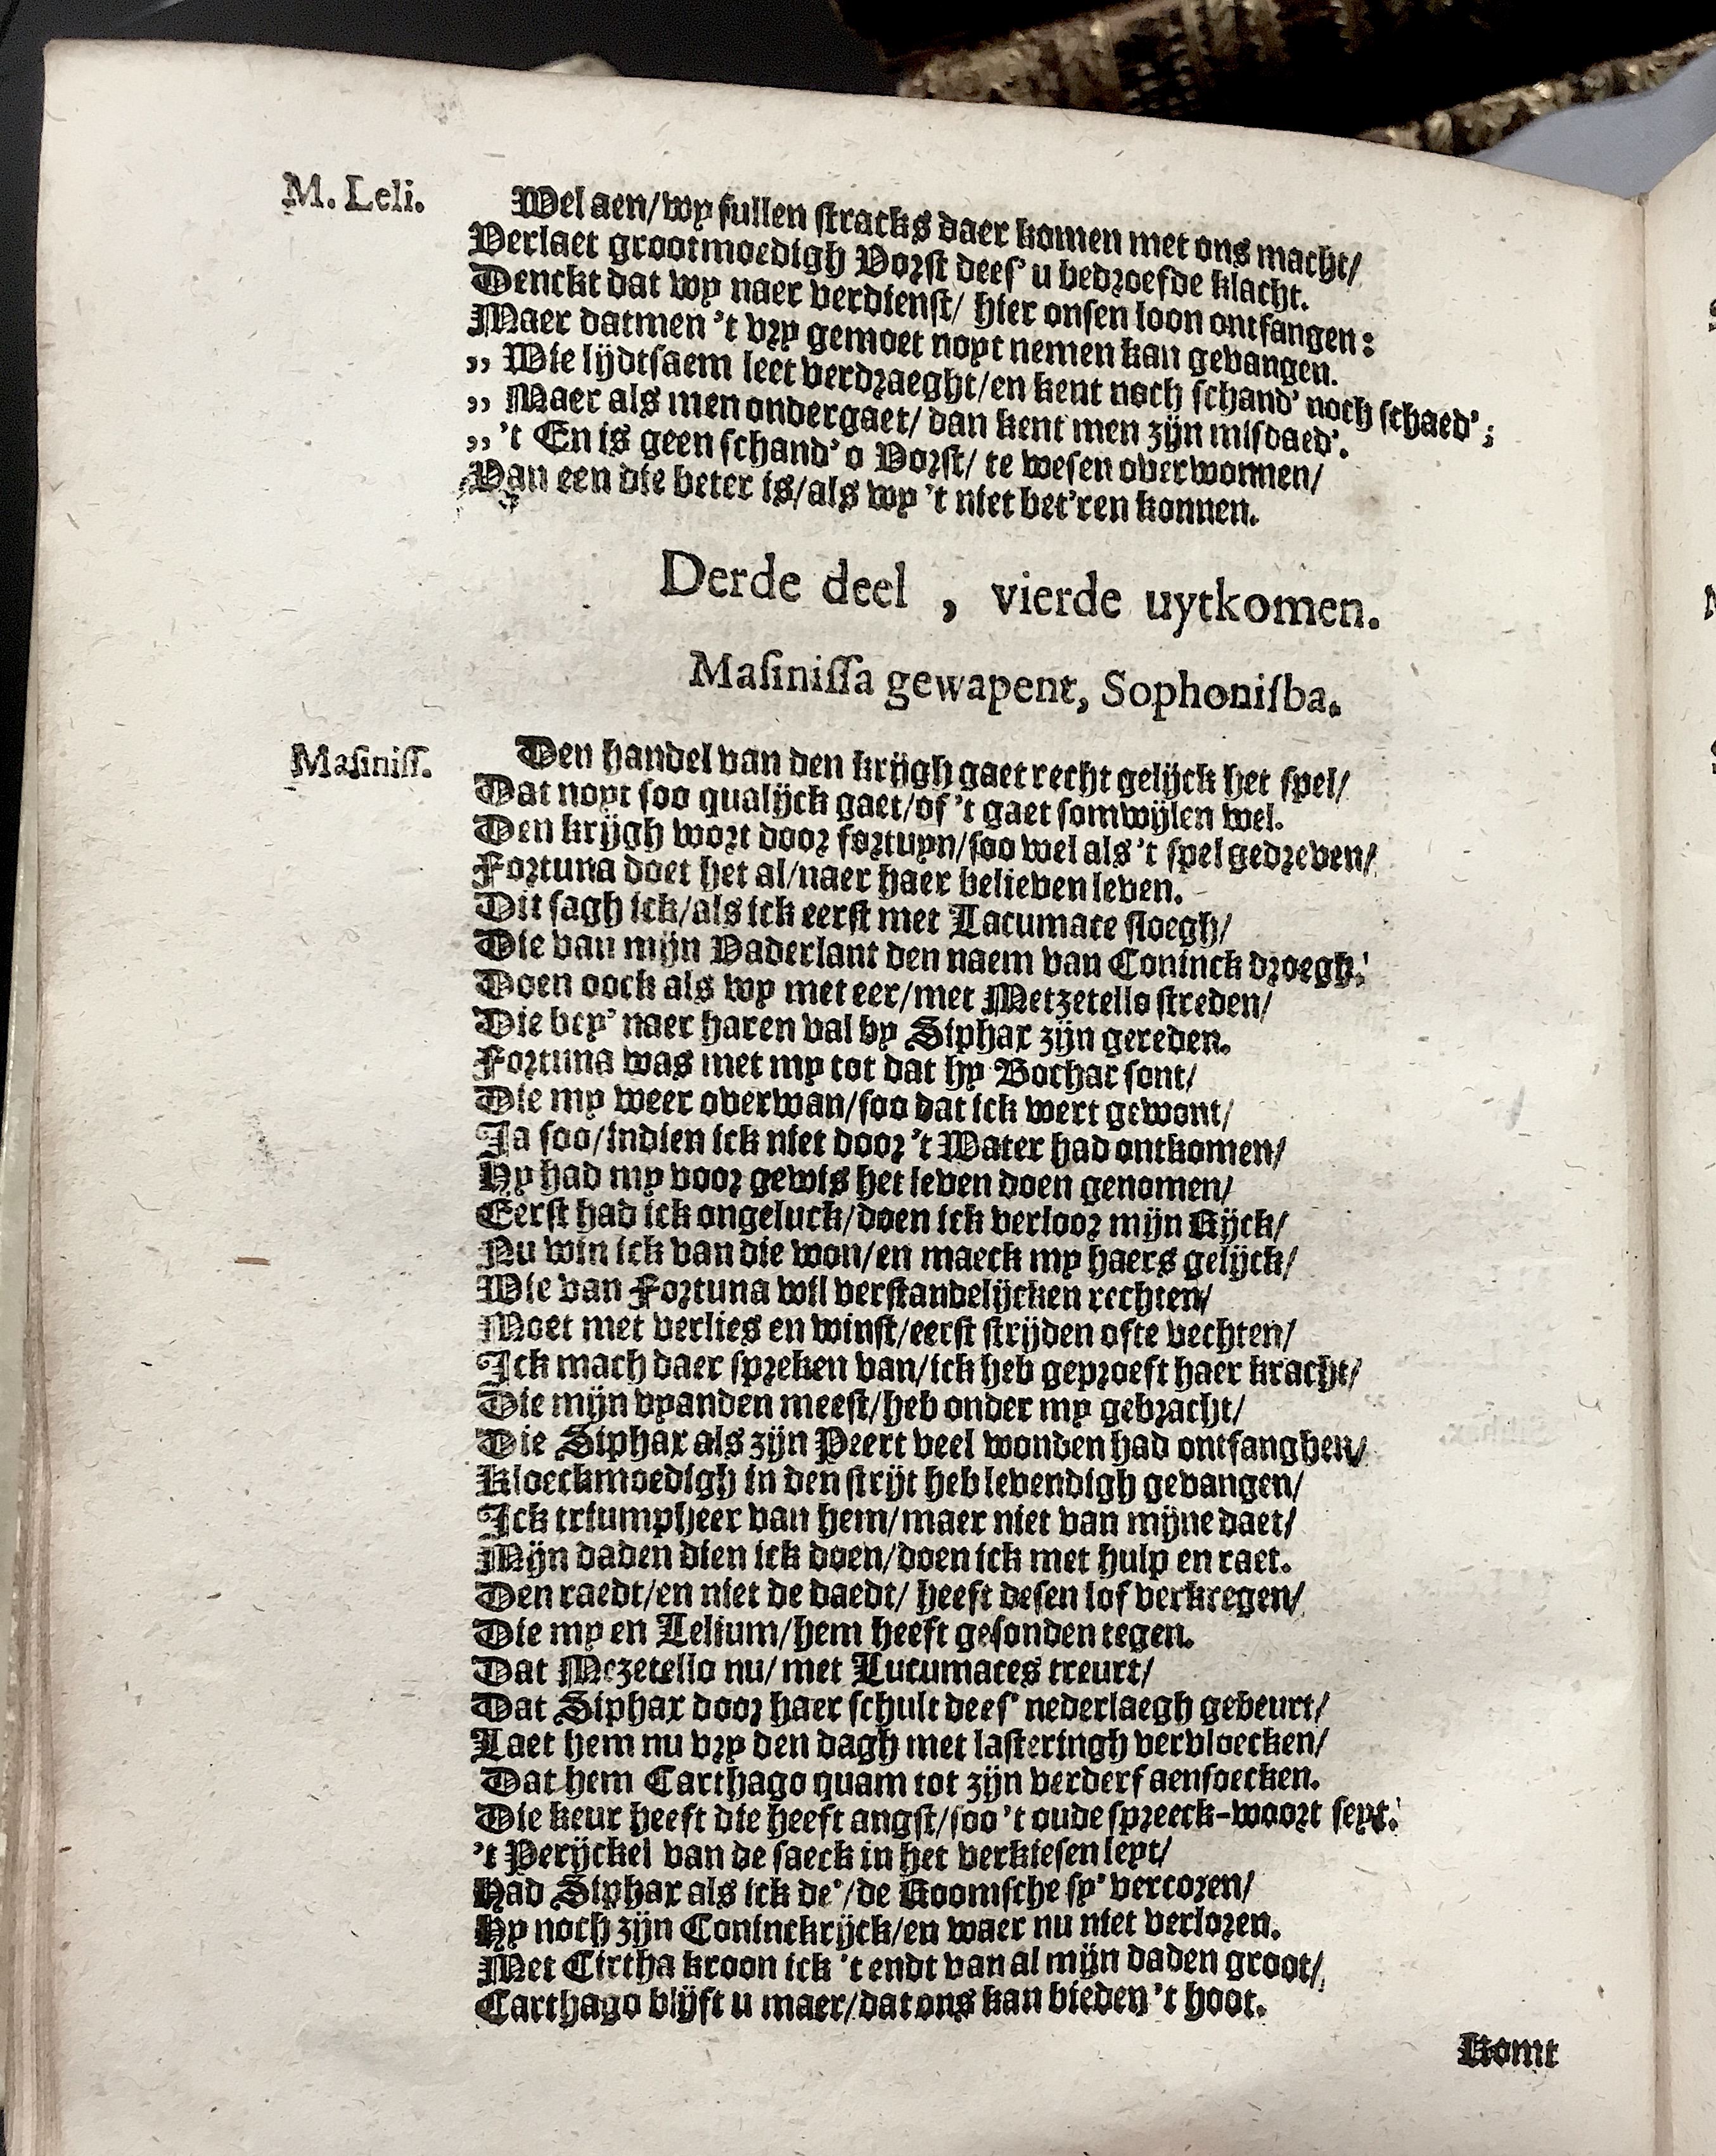 M. Leli. Wel aen/wy sullen stracks daer komen met ons macht/
Verlaet grootmoedigh Vorst dees' u bedroefde klacht.
Denckt dat wy naer verdienst/ hier onsen loon ontfangen:
Maer datmen 't vry gemoet noyt nemen kan gevangen.
,, Wie lijdtsaem leet verdraeght/en kent noch schand' noch schaed';
,, Maer als men ondergaet/ dan kent men zijn misdaed'.
,, 't En is geen schand' o Vorst/ te wesen overwonnen/
Van een die beter is/als wy 't niet bet'ren konnen.
Derde deel , vierde uytkomen.
Masinissa gewapent, Sophonisba.
Masiniss. Den handel van den krijgh gaet recht gelijck het spel/
Dat noyt soo qualijck gaet/of 't gaet somwijlen wel.
Den krijgh wort door fortuyn/soo wel als 't spel gedreven/
Fortuna doet het al/naer haer believen leven.
Dit sagh ick/als ick eerst met Lacumace sloegh/
Die van mijn Vaderlant den naem van Coninck droegh:
Doen oock als wy met eer/met Metzetello streden/
Die bey' naer haren val by Siphax zijn gereden.
Fortuna was met my tot dat hy Bochar sont/
Die my weer overwan/soo dat ick wert gewont/
Ja soo/indien ick niet door 't Water had ontkomen/
Hy had my voor gewis het leven doen genomen/
Eerst had ick ongeluck/doen ick verloor mijn Rijck/
Nu win ick van die won/en maeck my haers gelijck/
Wie van Fortuna wil verstandelijcken rechten/
Moet met verlies en winst/eerst strijden ofte vechten/
Ick mach daer spreken van/ick heb geproeft haer kracht/
Die mijn vyanden meest/heb onder my gebracht/
Die Siphax als zijn Peert veel wonden had ontfanghen/
Kloeckmoedigh in den strijt heb levendigh gevangen/
Ick triumpheer van hem/maer niet van mijne daet/
Mijn daden dien ick doen/doen ick met hulp en raet.
Den raedt/en niet de daedt/ heeft desen lof verkregen/
Die my en Lelium/hem heeft gesonden tegen.
Dat Mezetello nu/ met Lucumaces treurt/
Dat Siphax door haer schult dees' nederlaegh gebeurt/
Laet hem nu vry den dagh met lasteringh vervloecken/
Dat hem Carthago quam tot zijn verderf aensoecken.
Die keur heeft die heeft angst/soo 't oude spreeck-woort seyt:
't Perijckel van de saeck in het verkiesen leyt/
Had Siphax als ick de'/de Roomsche sy' vercoren/
Hy noch zijn Coninckrijck/en waer nu niet verloren.
Met Cirtha kroon ick 't endt van al mijn daden groot/
Carthago blijft u maer/dat ons kan bieden 't hoot.
Komt